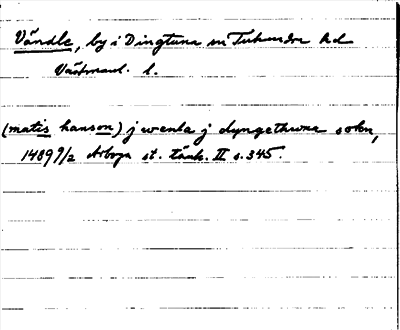 Vändle, by i Dingtuna sn Tuhundra hd
Västmanl. l.
(matis hanson) j wenla j dyngethuna sokn,
1489 9/2 Arboga st. tänk. II s. 345.